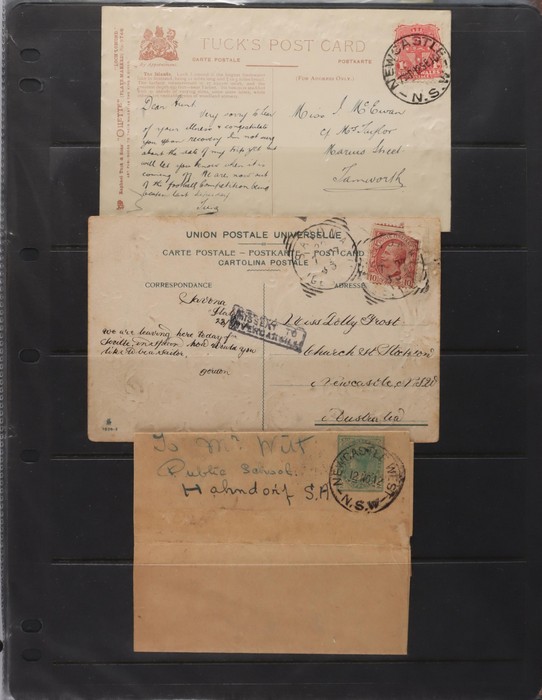 TUCK'S POST CARD
CARTE POSTALE
POSTKARTE
(FOR ADDRESS ONLY.)
NEWCASTLE
N.S.W
Dear Aunt
Very sorry to hear
of your illness & congratulate
you upon recovery. Am not sure
about the date of my trip yet but
will let you know when
coming. We are now out
of the football competition being
beaten last Saturday
Miss J. McEwan
c/ Mrs Taylor
Marius Street
Tamworth
UNION POSTALE UNIVERSELLE
CARTE POSTALE – POSTKARTE – POST CARD
CARTOLINA POSTALE
CORRESPONDANCE
ADRESSE
Savona
we are leaving here today for
how would you
like to be a sailor.
Gordon
MISSENT TO
INVERCARGILL
Miss Dolly Frost
Church St Stockton
Newcastle NSW
Australia
To Mr Witt
Public School
Hahndorf S.A
NEWCASTLE WEST
N.S.W